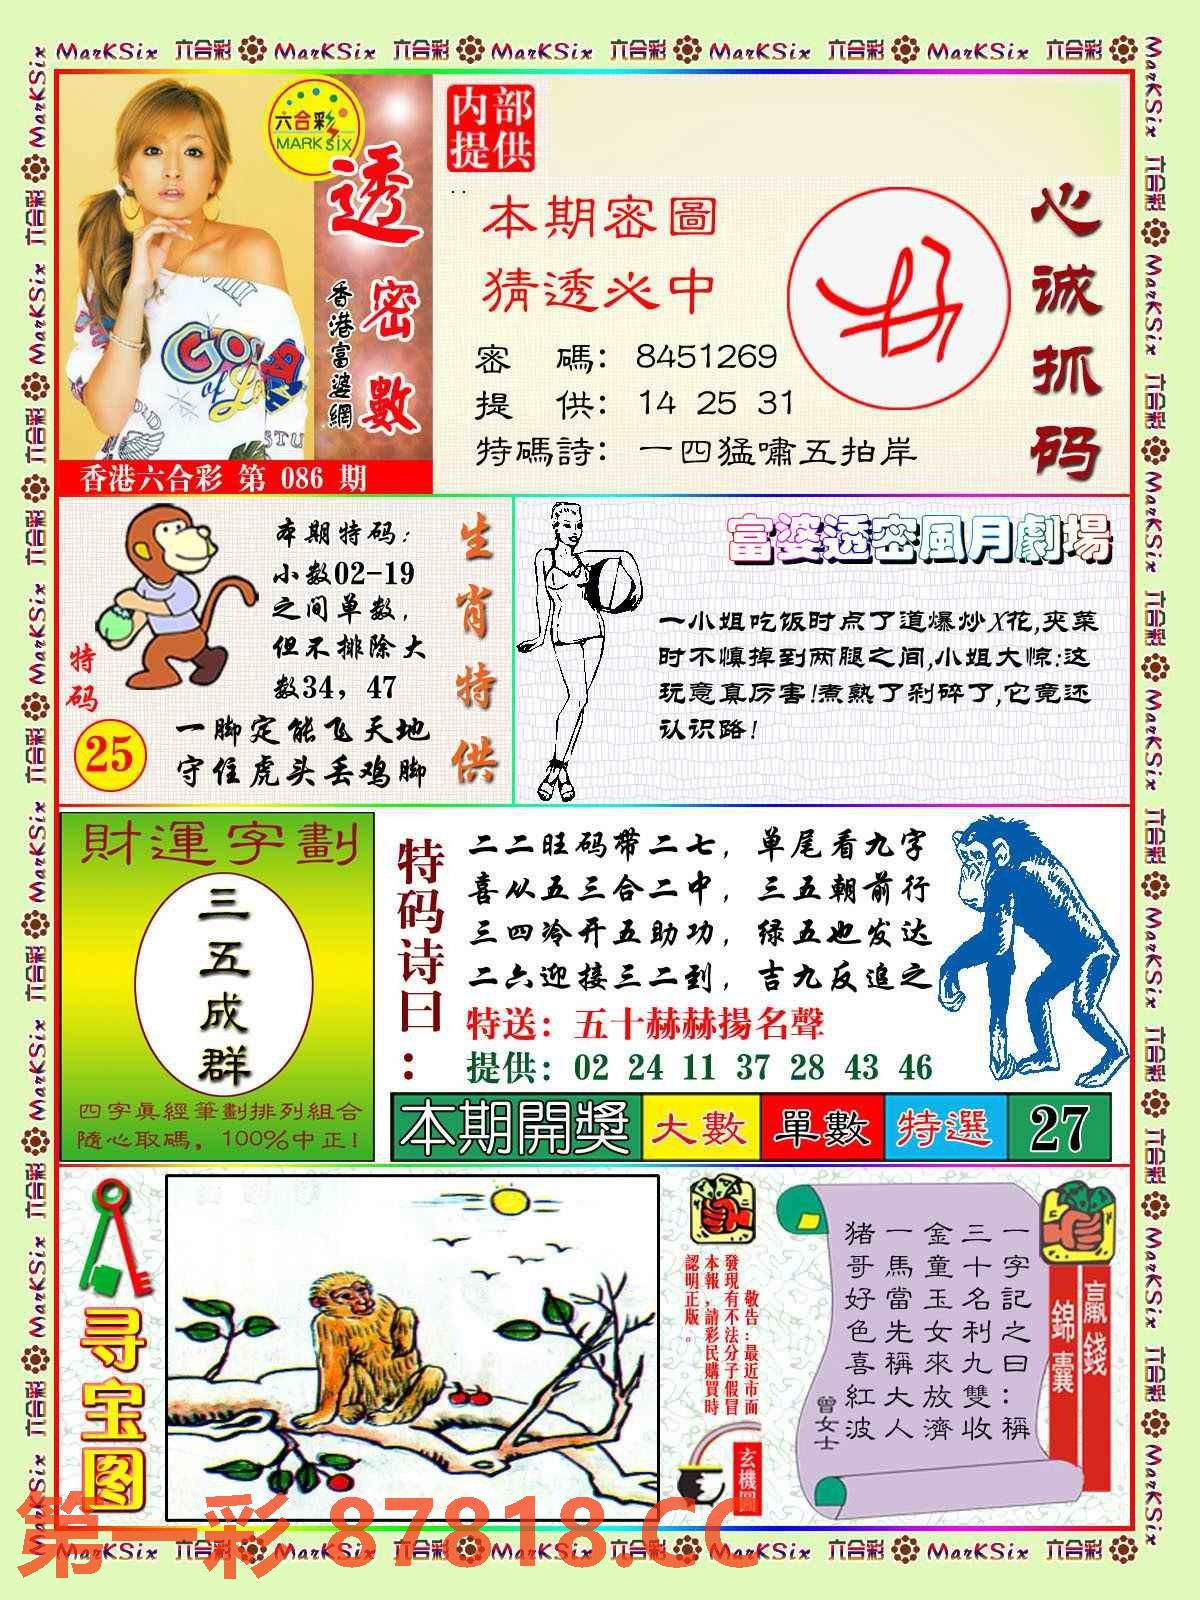 MarKSix 六合彩 MarKSix 六合彩 MarKSix 六合彩 MarKSix 六合彩 MarKSix 六合彩
六合彩
MARK SIX
透密數
香港富婆網
香港六合彩 第 086 期
内部
提供
本期密圖
猜透必中
密 碼: 8451269
提 供: 14 25 31
特碼詩: 一四猛嘯五拍岸
心诚抓码
特码
25
本期特码:
小数02-19
之间单数,
但不排除大
数34, 47
一脚定能飞天地
守住虎头丢鸡脚
生肖特供
富婆透密風月劇場
一小姐吃饭时点了道爆炒X花,夹菜
时不慎掉到两腿之间,小姐大惊:这
玩意真厉害!煮熟了剁碎了,它竟还
认识路!
財運字劃
三五成群
四字真經筆劃排列組合
隨心取碼, 100%中正!
特码诗曰:
二二旺码带二七, 单尾看九字
喜从五三合二中, 三五朝前行
三四冷开五助功, 绿五也发达
二六迎接三二到, 吉九反追之
特送: 五十赫赫揚名聲
提供: 02 24 11 37 28 43 46
本期開獎 大數 單數 特選 27
寻宝图
敬告:最近市面
發現有不法分子假冒
本報,請彩民購買時
認明正版。
玄機圖
一字記之曰:稱
三十名利九雙收
金童玉女來放濟
一馬當先稱大人
猪哥好色喜紅波
曾女士
贏錢
錦囊
第一彩 87818.CC
MarKSix 六合彩 MarKSix 六合彩 MarKSix 六合彩 MarKSix 六合彩 MarKSix 六合彩